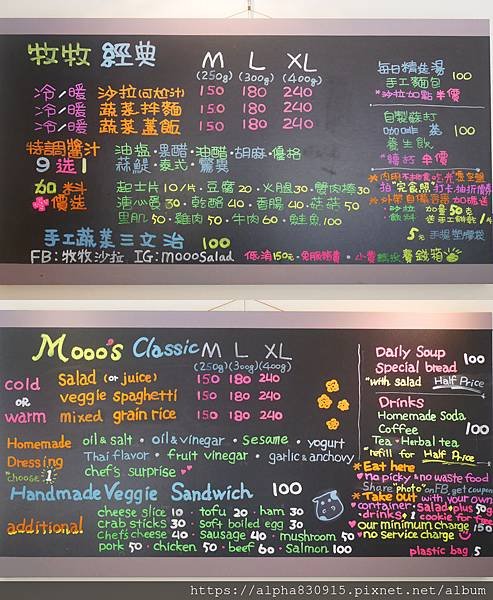 牧牧 經典 M L XL
(250g) (300g) (400g)
冷/暖 沙拉(可加汁) 150 180 240
冷/暖 蔬菜拌麵 150 180 240
冷/暖 蔬菜蓋飯 150 180 240
特調醬汁
9選1
油鹽・果醋・油醋・胡麻・優格
蒜鯷・泰式・驚奇
加料
價選
起士片10/片・豆腐20・火腿30・蟹肉棒30
溏心蛋30・乾酪40・香腸40・菇菇50
里肌50・雞肉50・牛肉60・鮭魚100
手工蔬菜三文治 100
FB:牧牧沙拉. IG:mooosalad
低消150元・免服務費・小費
每日精選湯
手工麵包 100
*沙拉加點半價
自製蘇打
咖啡 茶 100
養生飲
*續打半價
拍"完食照"打卡
*外帶自備容器
沙拉 加量50克
飲料 送手工餅乾1片
5元 手提塑膠袋
Mooo's Classic M L XL
(250g) (300g) (400g)
cold
OR
warm
salad (or juice) 150 180 240
veggie spaghetti 150 180 240
mixed grain rice 150 180 240
Homemade
Dressing
choose 1
oil & salt • oil & vinegar • sesame • yogurt
Thai flavor • fruit vinegar • garlic & anchovy
chef's surprise
Handmade Veggie Sandwich 100
additional
cheese slice 10 • tofu 20 • ham 30
crab sticks 30 • soft boiled egg 30
chefs cheese 40 • sausage 40 • mushroom 50
pork 50 • chicken 50 • beef 60 • salmon 100
Daily Soup
Special bread 100
*with salad Half Price
Drinks
Homemade Soda
Coffee 100
Tea Herbal tea
*refill for Half Price
*Eat here
no picky & no waste food
Share photo on FB, get coupon
*Take out with your own
container • salad plus 50g
drinks 1 cookie for free
our minimum charge 150
no service charge
plastic bag 5
https://alpha830915.pixnet.net/album